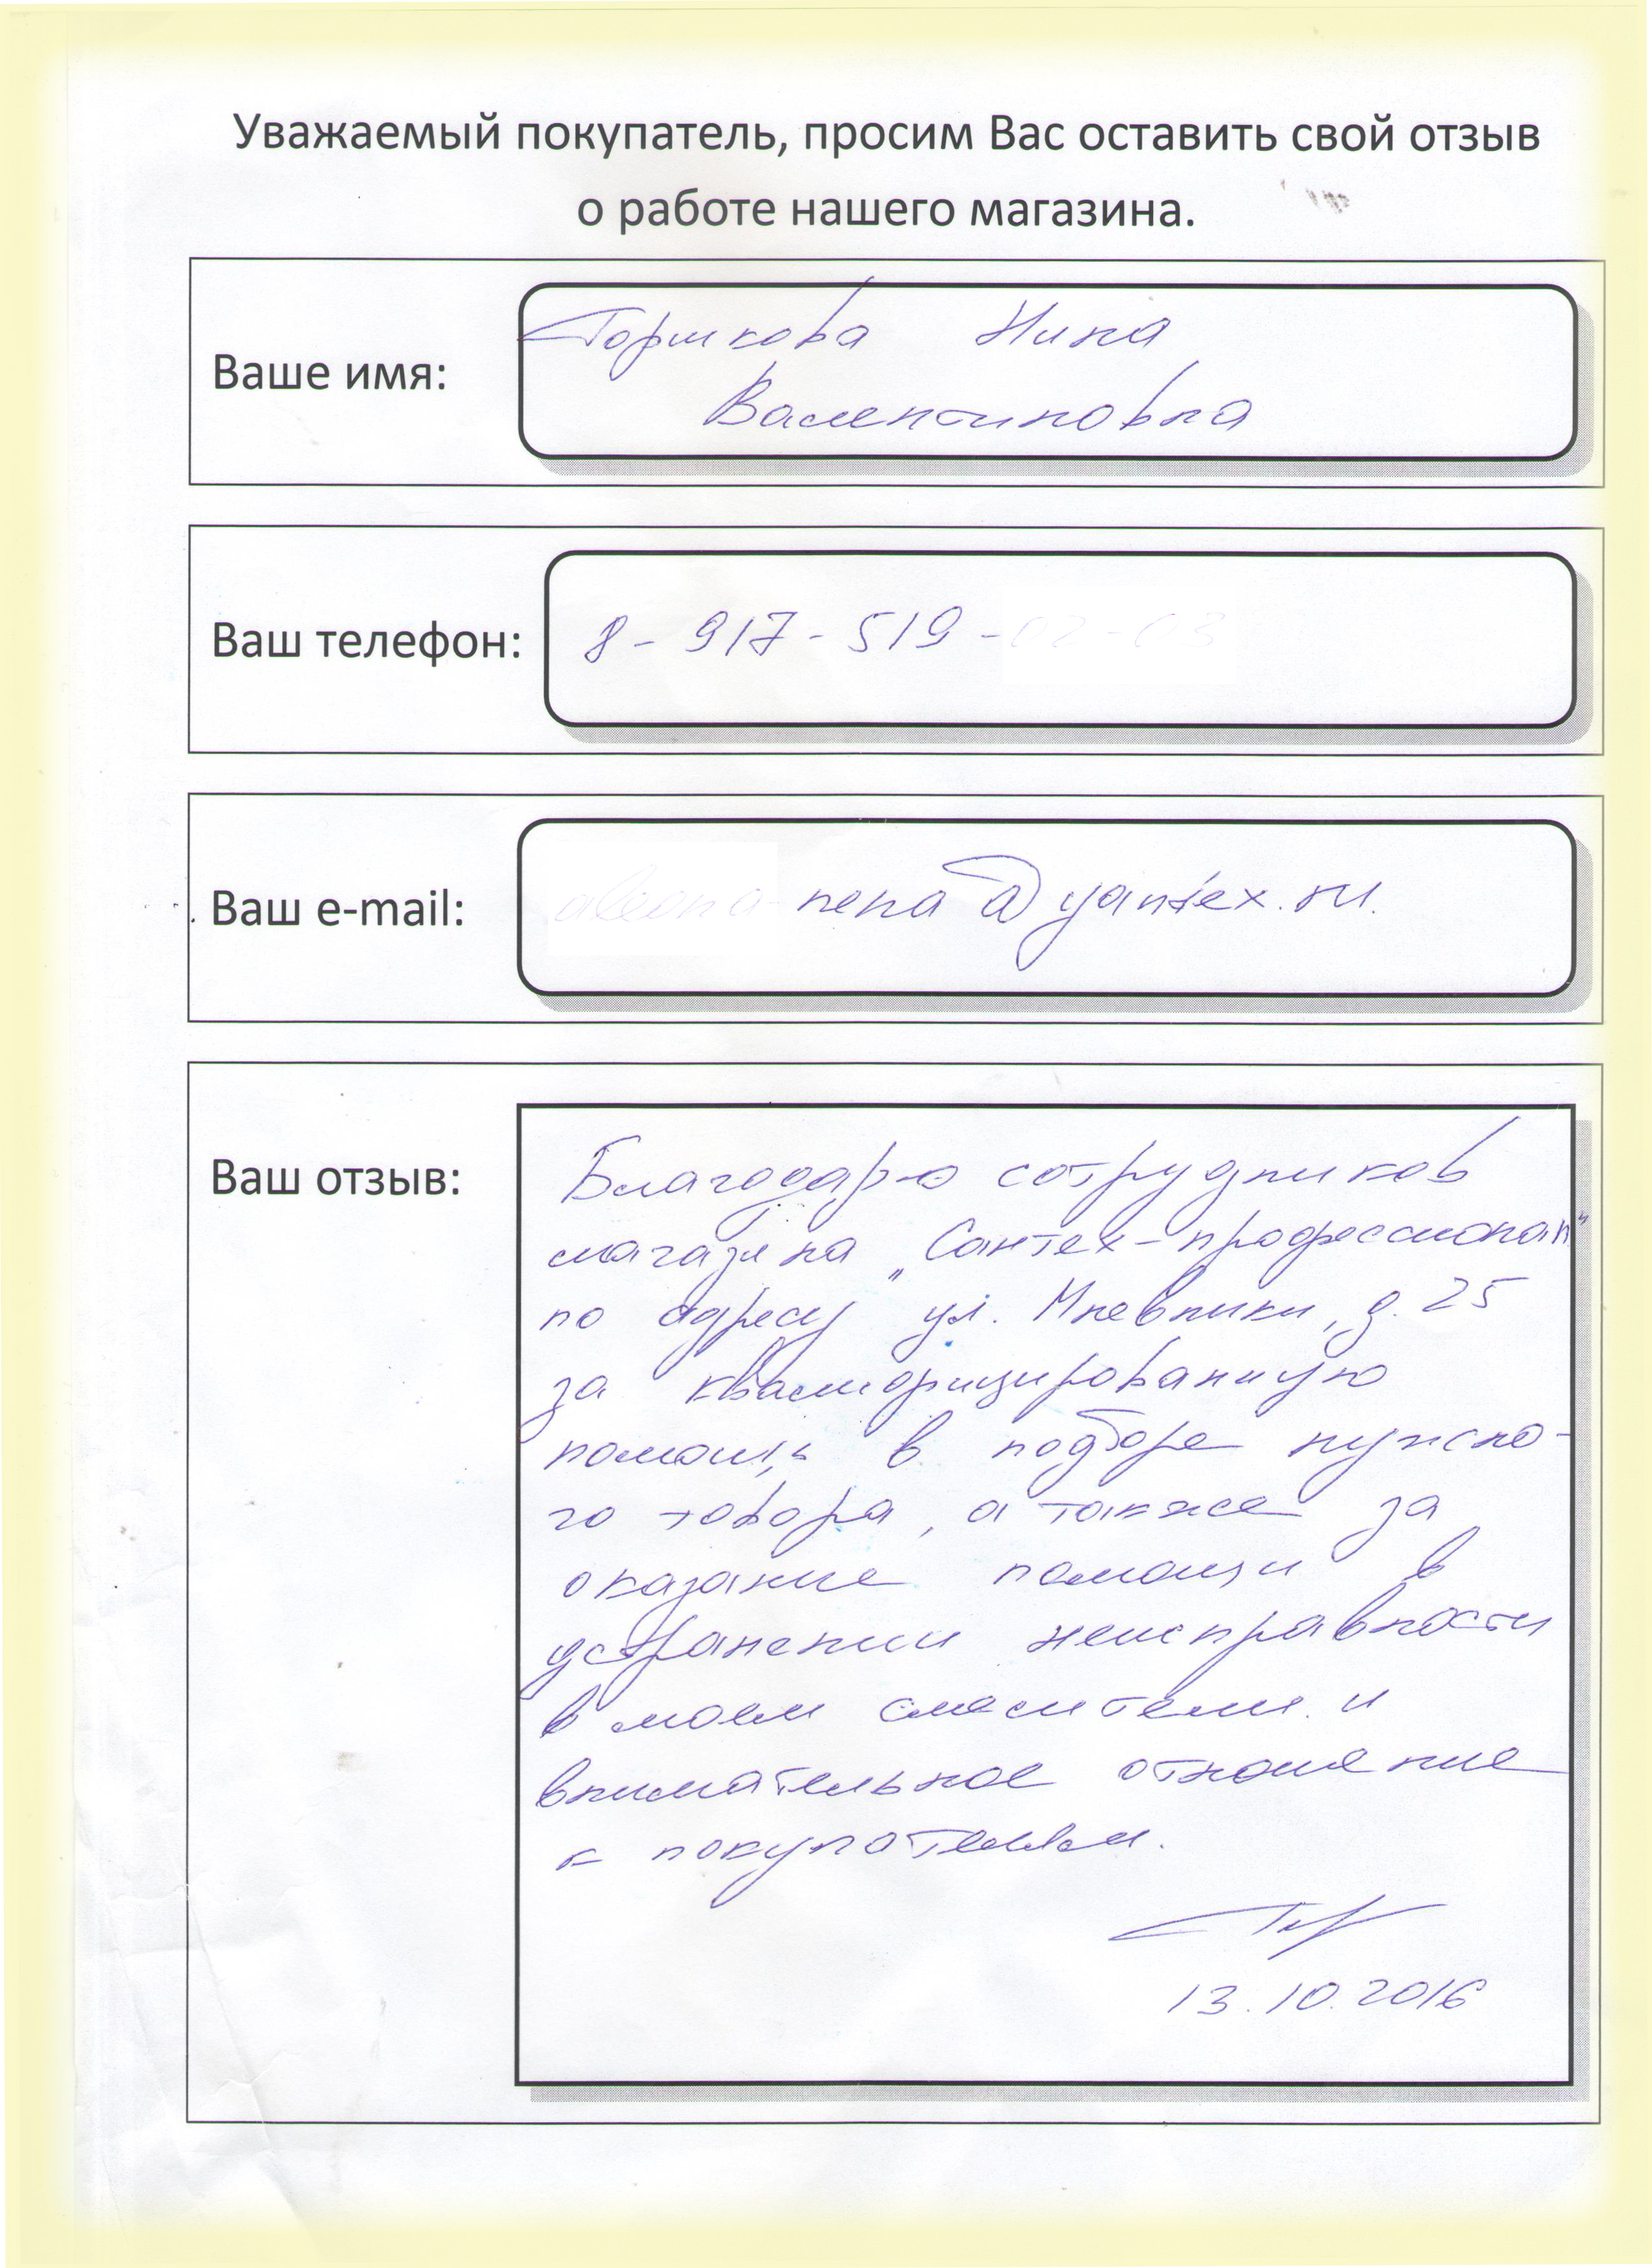 Уважаемый покупатель, просим Вас оставить свой отзыв
о работе нашего магазина.
Ваше имя:
Горшкова Нина
Валентиновна
Ваш телефон:
8-917-519-
Ваш e-mail:
nena@yandex.ru.
Ваш отзыв:
Благодарю сотрудников
магазина „Сантех-профессионал"
по адресу ул. Мневники, д. 25
за квалифицированную
помощь в подборе нужно-
го товара, а также за
оказание помощи в
устранении неисправности
в моем смесителе и
внимательное отношение
к покупателям.
13.10.2016